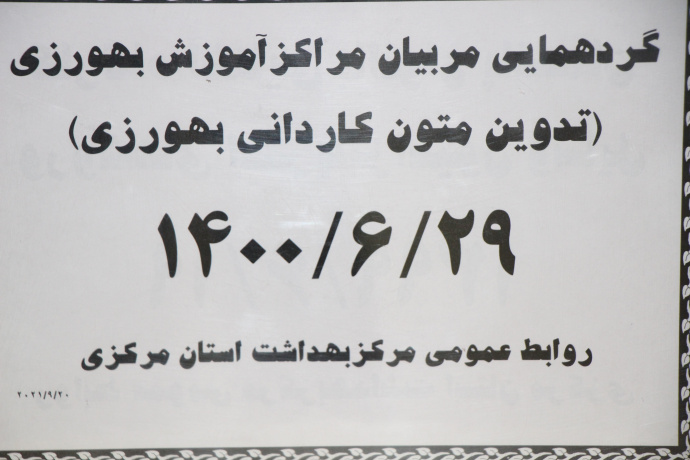 گردهمایی مربیان مراکزآموزش بهورزی
(تدوین متون کاردانی بهورزی)
۱۴۰۰/۶/۲۹
روابط عمومی مرکزبهداشت استان مرکزی
۲۰۲۱/۹/۲۰